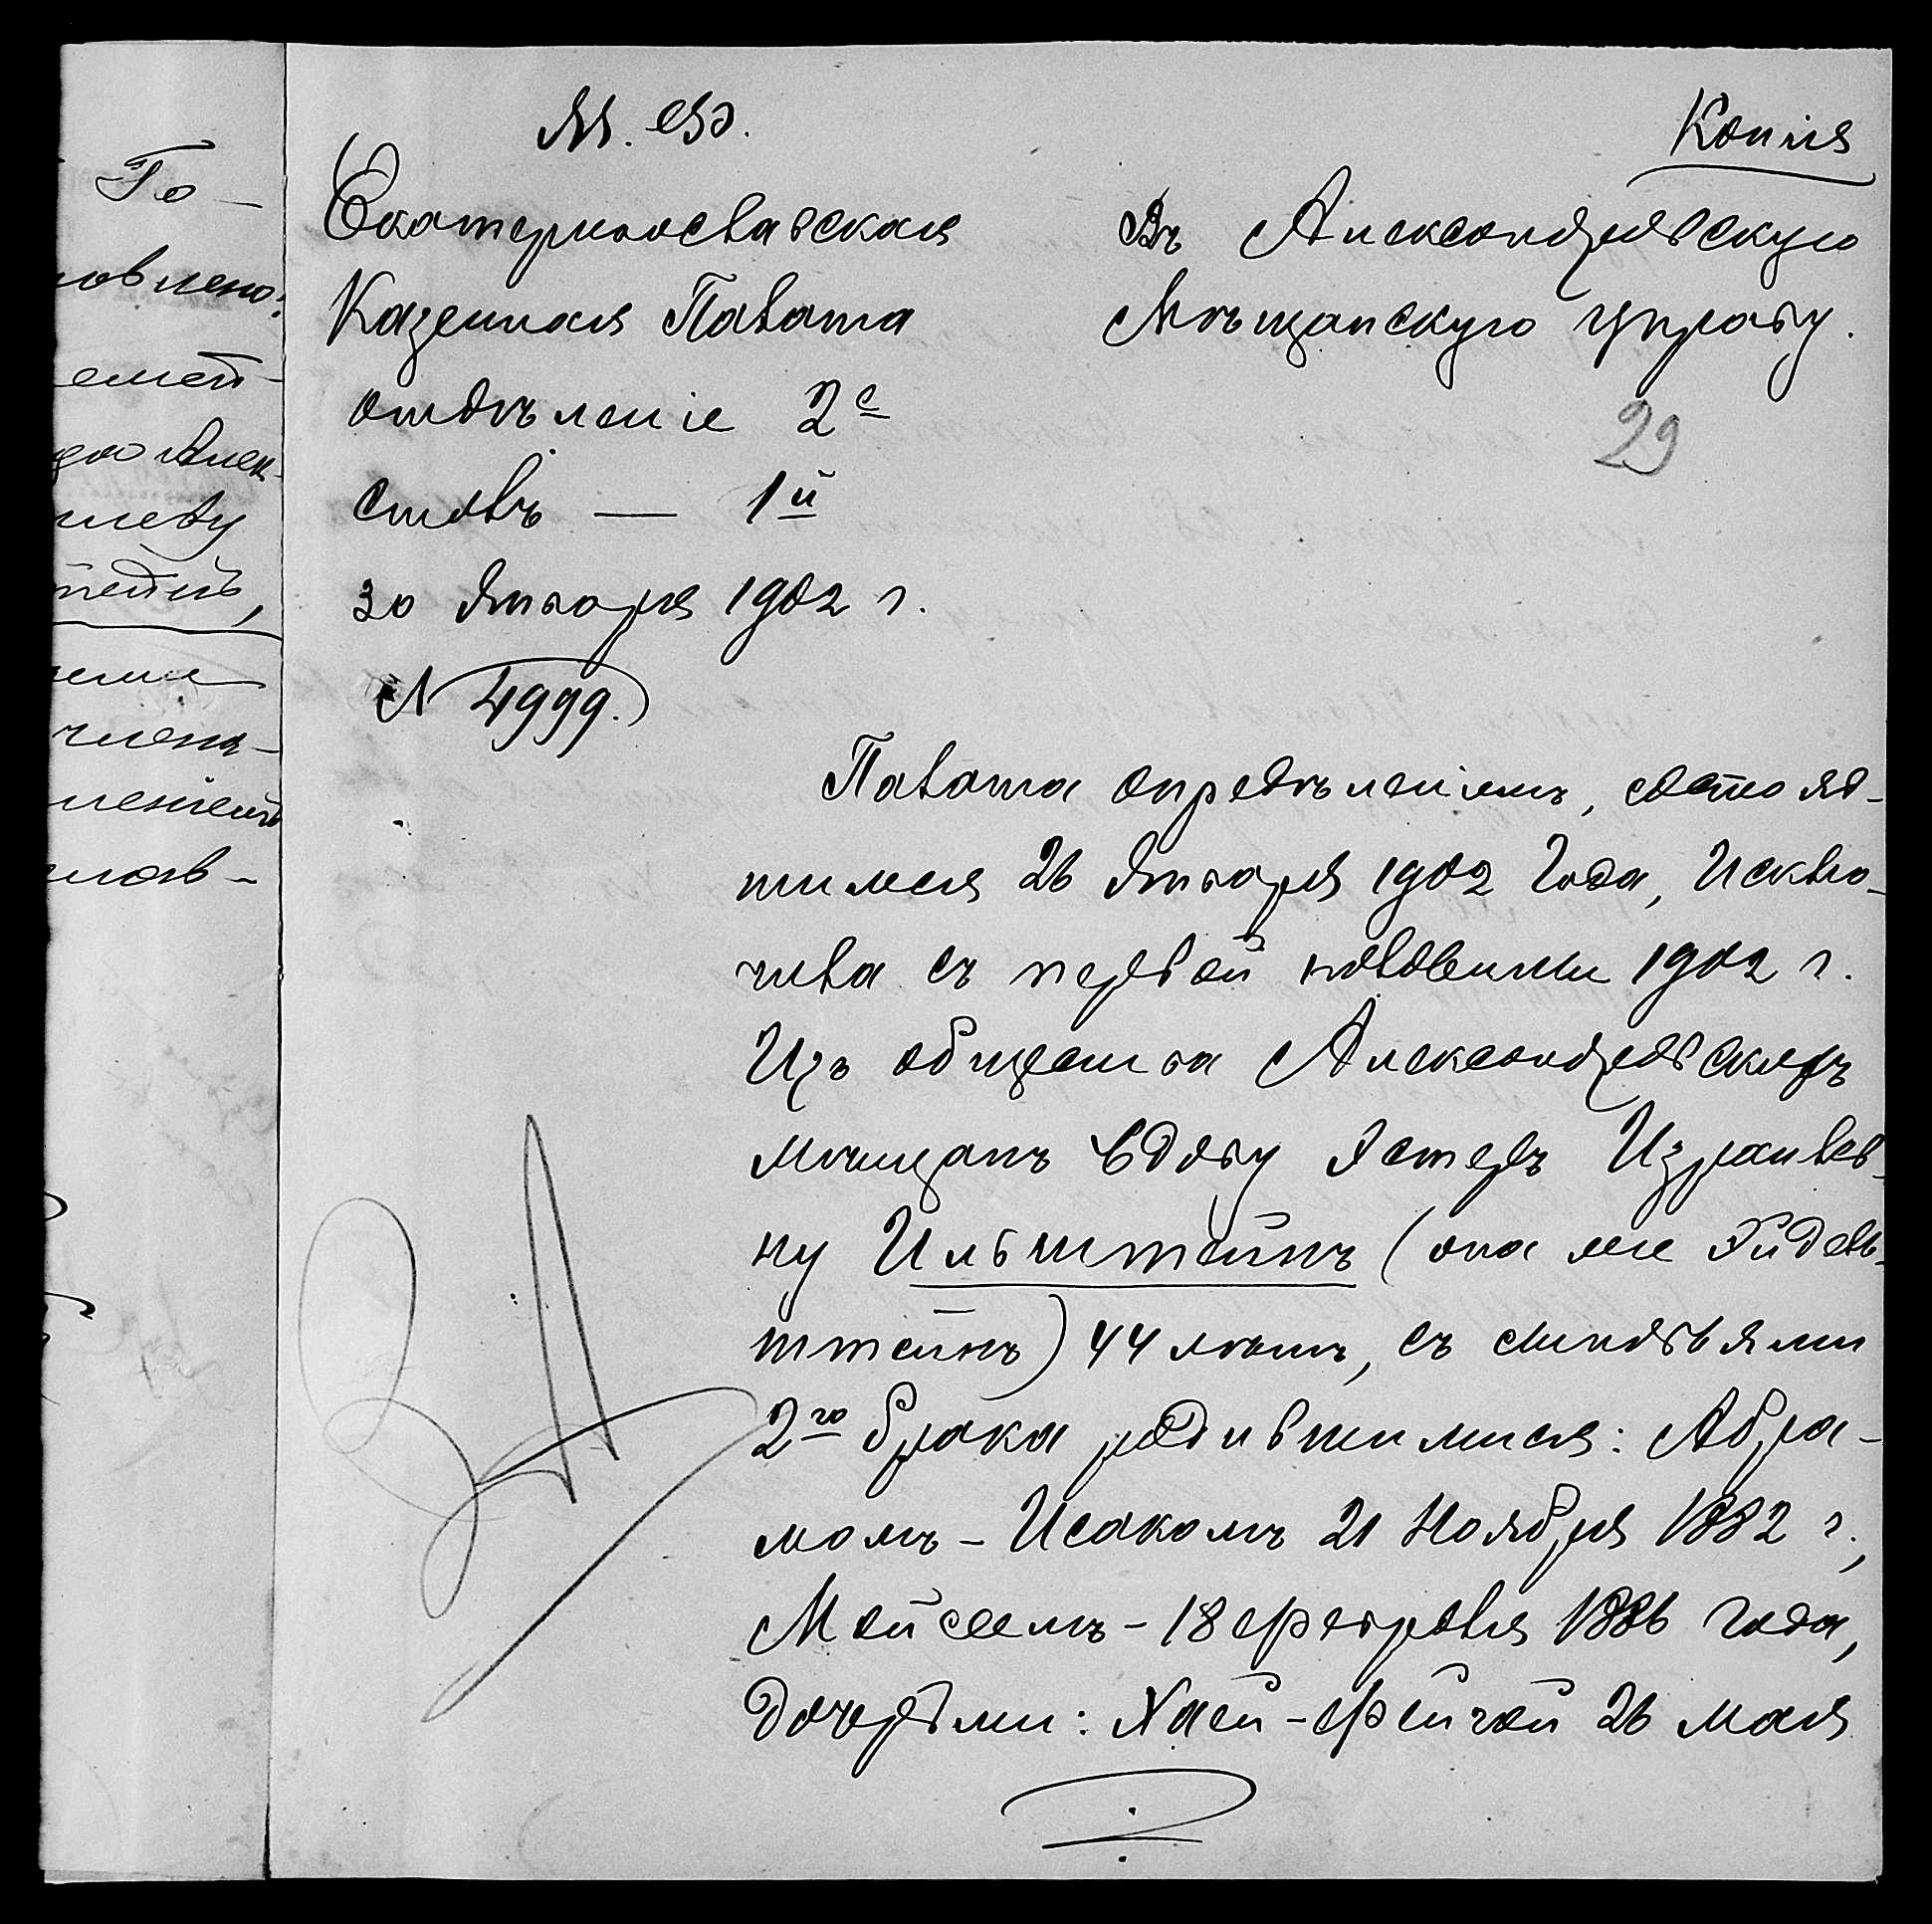 Го-
овлено:
М. Ф.
Копія
Екатеринославская
Казенная Палата
отдѣленіе 2е
столъ — 1й
30 Января 1902 г.
N 4999.
Въ Александровскую
Мѣщанскую управу.
29
Палата опредѣленіемъ, состояв-
шимся 26 Января 1902 года, Исклю-
чила съ первой половины 1902 г.
Изъ общества Александровскихъ
мѣщанъ вдову Эстеръ Израилев-
ну Ильштейнъ (она же Эйдель-
штейнъ) 44 лѣтъ, съ сыновьями
2го брака родившимися: Абра-
момъ-Исакомъ 21 Ноября 1882 г.,
Мойсеемъ - 18 Февраля 1886 года,
дочерьми: Хаей-Фейгой 26 мая